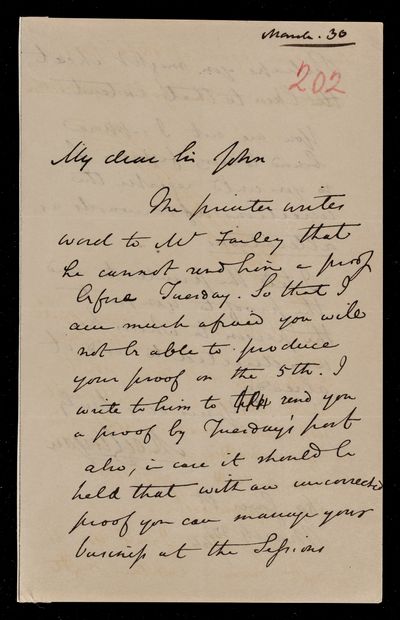 March. 30
202
My dear Sir John
The printer writes
word to Mr Farley that
he cannot send him a proof
before Tuesday. So that I
am much afraid you will
not be able to produce
your proof on the 5th. I
write to him to send you
a proof by Tuesday's post
also, in case it should be
held that with an uncorrected
proof you can manage your
business at the Sessions